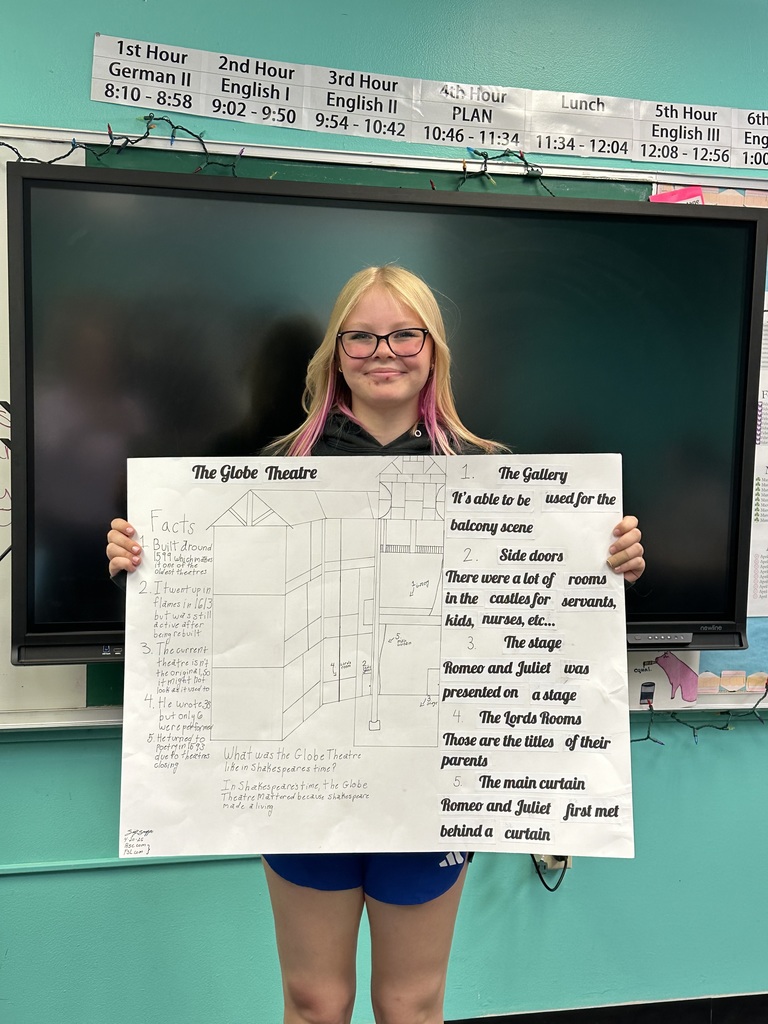 1st Hour
German II
8:10 - 8:58
2nd Hour
English I
9:02 - 9:50
3rd Hour
English II
9:54 - 10:42
4th Hour
PLAN
10:46 - 11:34
Lunch
11:34 - 12:04
5th Hour
English III
12:08 - 12:56
6th
Eng
1:00
newline
The Globe Theatre
Facts
1. Built around
1599 which makes
it one of the
oldest theatres
2. It went up in
flames in 1613
but was still
active after
being rebuilt
3. The current
theatre isn't
the original, so
it might not
look as it used to
4. He wrote 38
but only 6
were performed
5. He turned to
poetry in 1593
due to theatres
closing
What was the Globe Theatre
like in Shakespeares time?
In Shakespeares time, the Globe
Theatre mattured because shakespeare
made a living
1. The Gallery
It's able to be used for the
balcony scene
2. Side doors
There were a lot of rooms
in the castles for servants,
kids, nurses, etc...
3. The stage
Romeo and Juliet was
presented on a stage
4. The Lords Rooms
Those are the titles of their
parents
5. The main curtain
Romeo and Juliet first met
behind a curtain